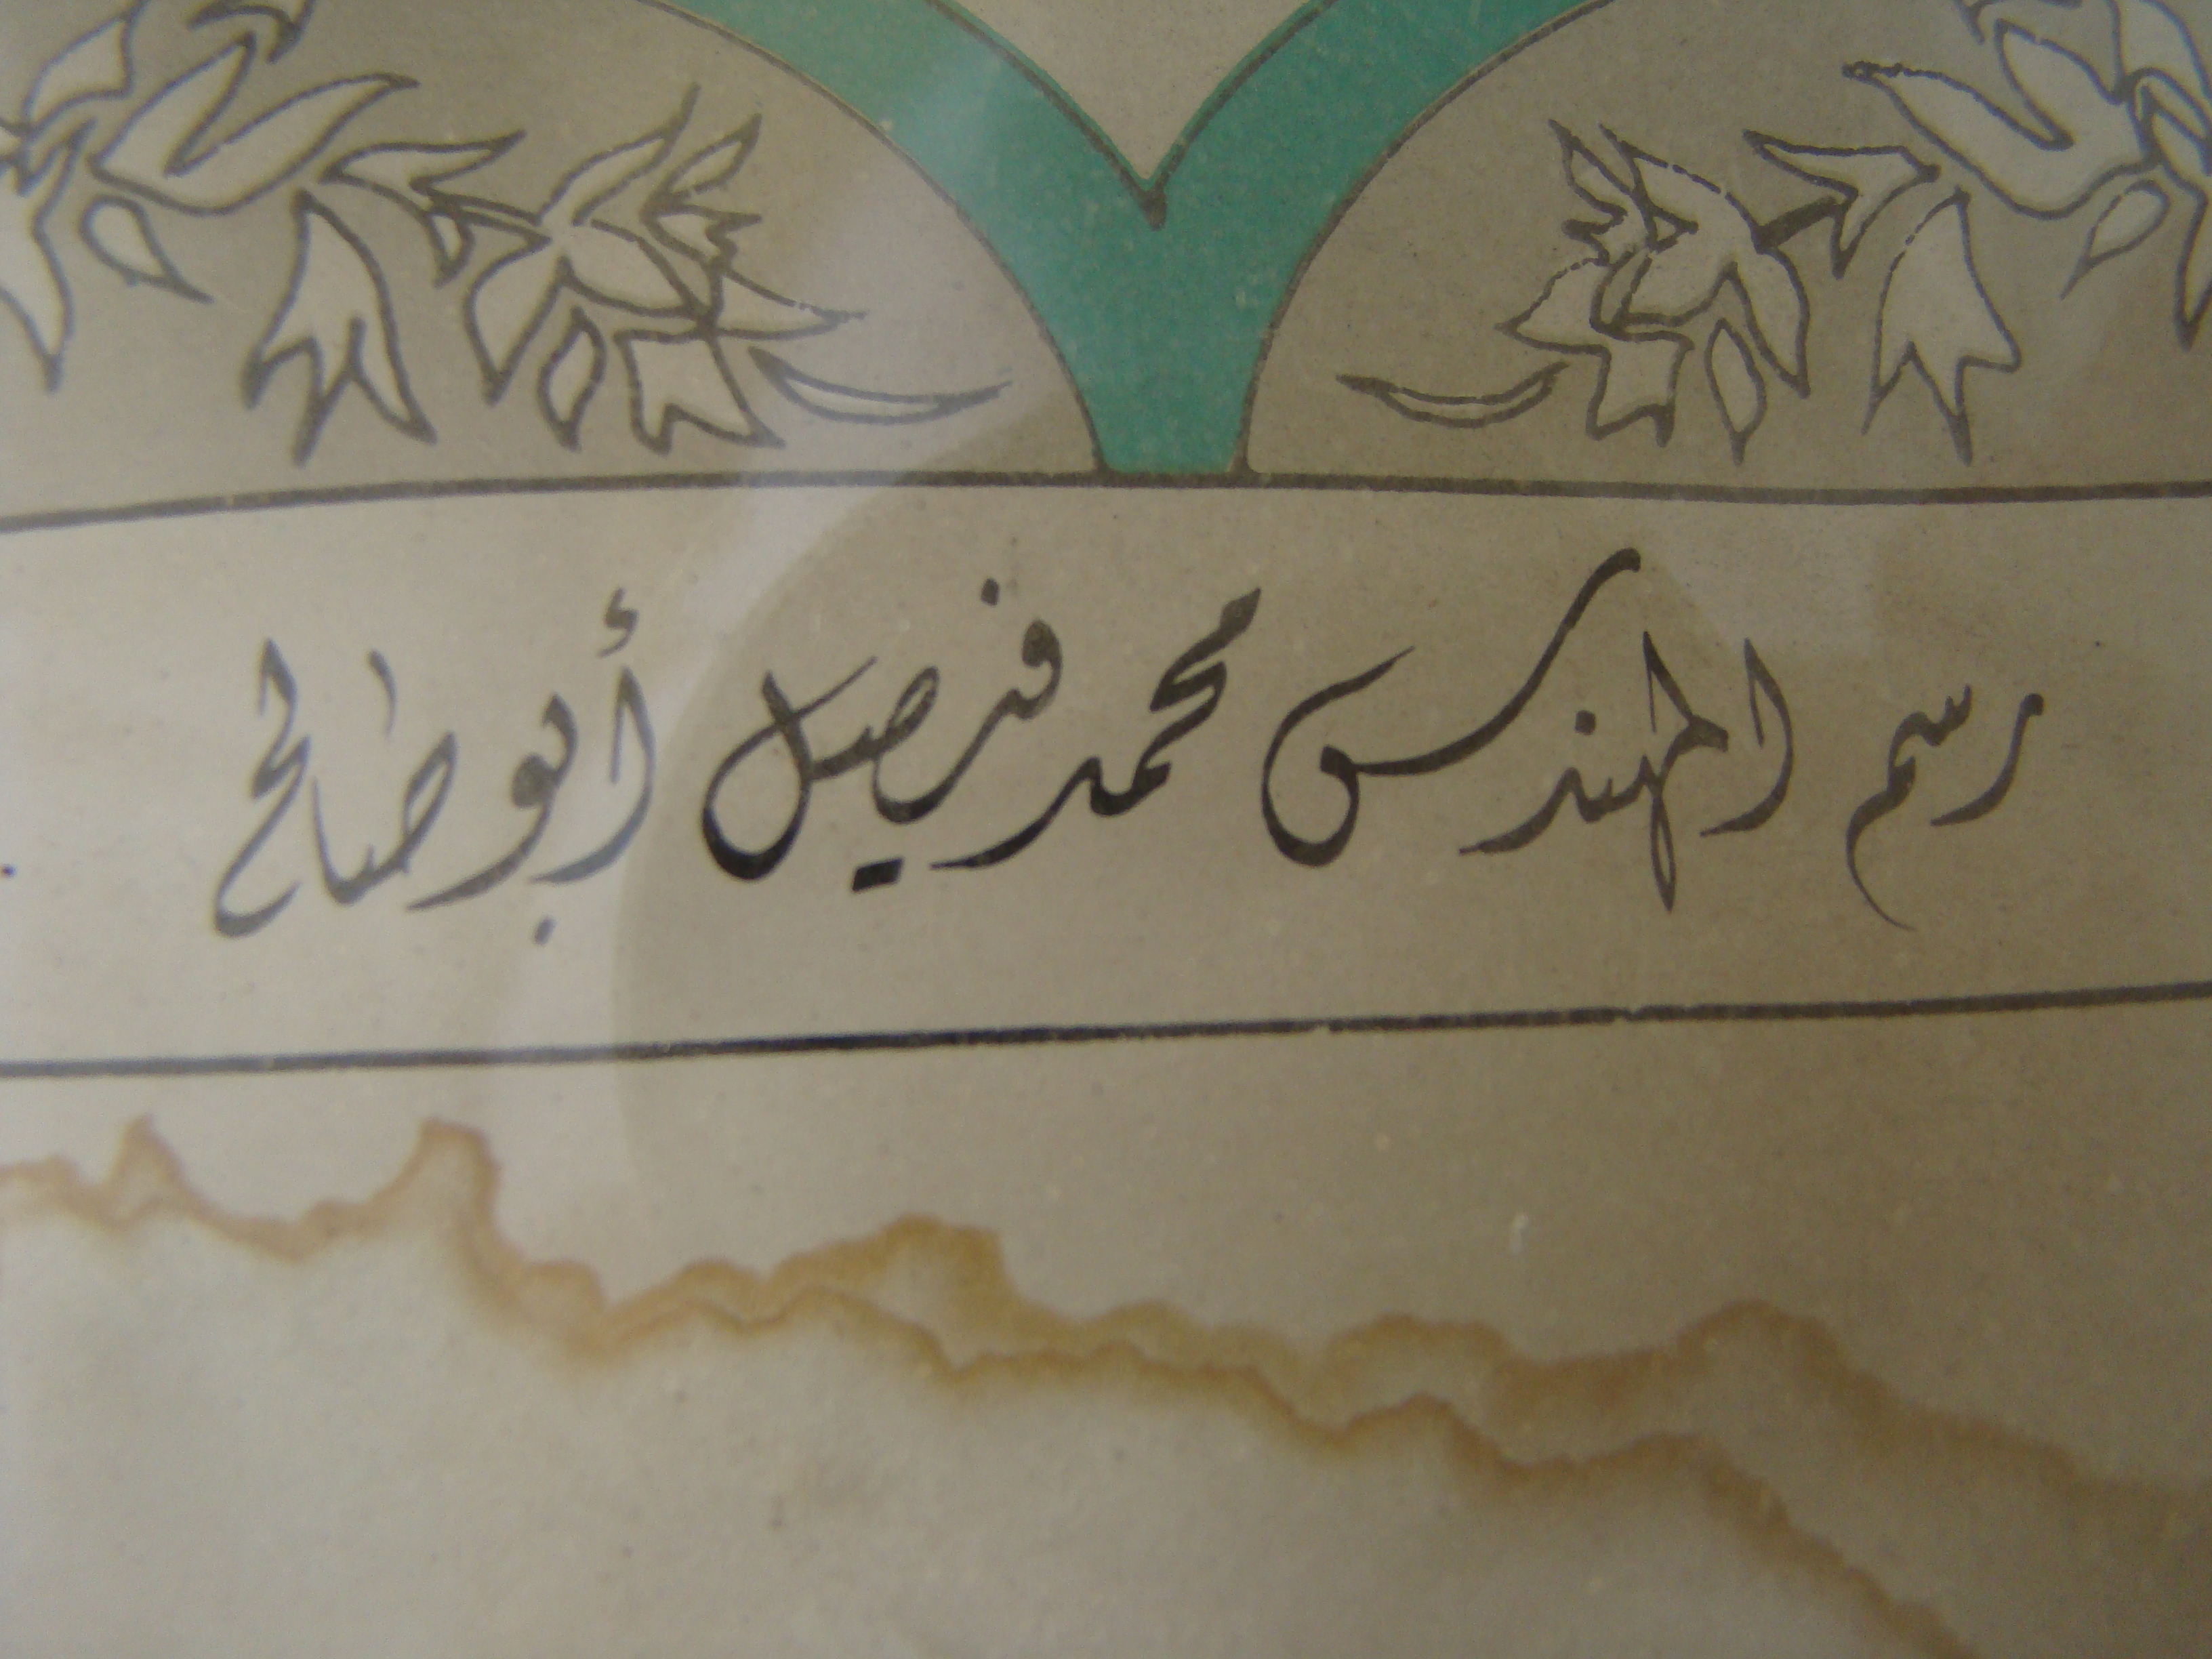 رسم المهندس محمد فيصل أبو صالح